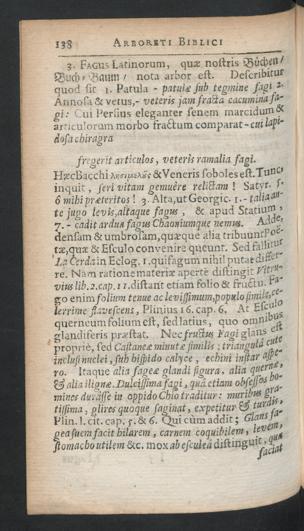 138 ARBORETI BIBLICI
3. FAGUS Latinorum, quæ nostris Büchen/
Buch-Baum/ nota arbor est. Describitur
quod sit 1. Patula - patulæ sub tegmine fagi 2.
Annosa & vetus, - veteris jam fracta cacumina fa-
gi: Cui Persius eleganter senem marcidum &
articulorum morbo fractum comparat - cui lapi-
dosa chiragra
fregerit articulos, veteris ramalia fagi.
Hæc Bacchi & Veneris soboles est. Tunc
inquit, seri vitam gemuêre relictam! Satyr. 5.
ô mihi præteritos! 3. Alta, ut Georgic. 1. - talia an-
te jugo levis, altaque fagus, & apud Statium,
7. - cadit ardua fagus Chaoniumque nemus. Adde,
densam & umbrosam, quæque alia tribuunt Poë-
tæ, quæ & Esculo convenire queunt. Sed fallitur
La Cerda in Eclog. 1. qui fagum nihil putat differ-
re. Nam ratione materiæ apertè distingit Vitru-
vius lib. 2. cap. 11. distant etiam folio & fructu. Fa-
go enim folium tenue ac levissimum, populo simile, ce-
lerrime flavescens, Plinius 16. cap. 6. At Esculo
querneum folium est, sed latius, quo omnibus
glandiferis præstat. Nec fructus Fagi glans est
propriè, sed Castaneæ minutæ similis: triangula cute
inclusi nuclei, sub hispido calyce, echini instar aspe-
ro. Itaque alia fageæ glandi figura, alia querneæ,
& alia iligneæ. Dulcissima fagi, quâ etiam obsessos ho-
mines durâsse in oppido Chio traditur: muribus gra-
tissima, glires quoque saginat, expetitur & turdis,
Plin. l. cit. cap. 5. & 6. Qui cùm addit; Glans fa-
gea suem facit hilarem, carnem coquibilem, levem,
stomacho utilem &c. mox ab esculeâ distinguit, quæ
faciat